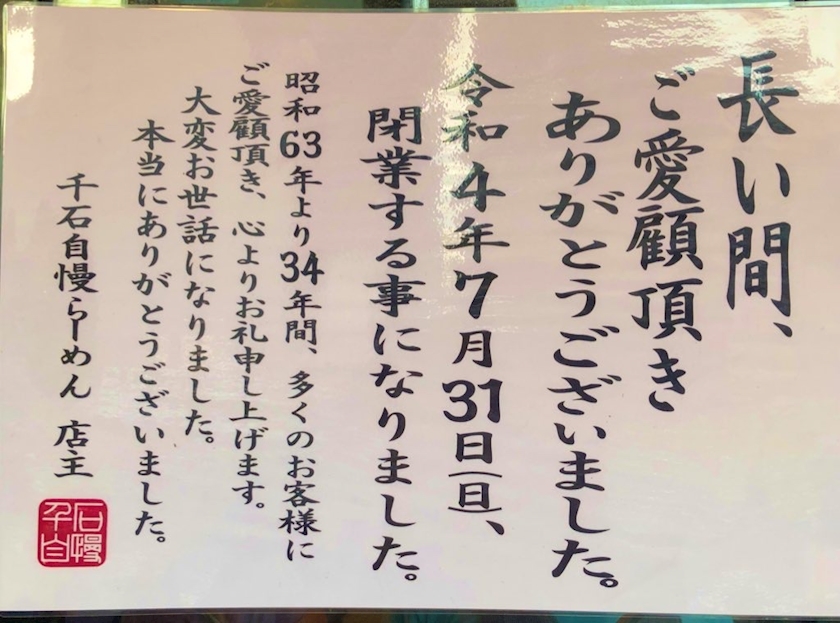 長い間、
ご愛顧頂き
ありがとうございました。
令和4年7月31日(日)、
閉業する事になりました。
昭和63年より34年間、多くのお客様に
ご愛顧頂き、心よりお礼申し上げます。
大変お世話になりました。
本当にありがとうございました。
千石自慢らーめん 店主
千石自慢